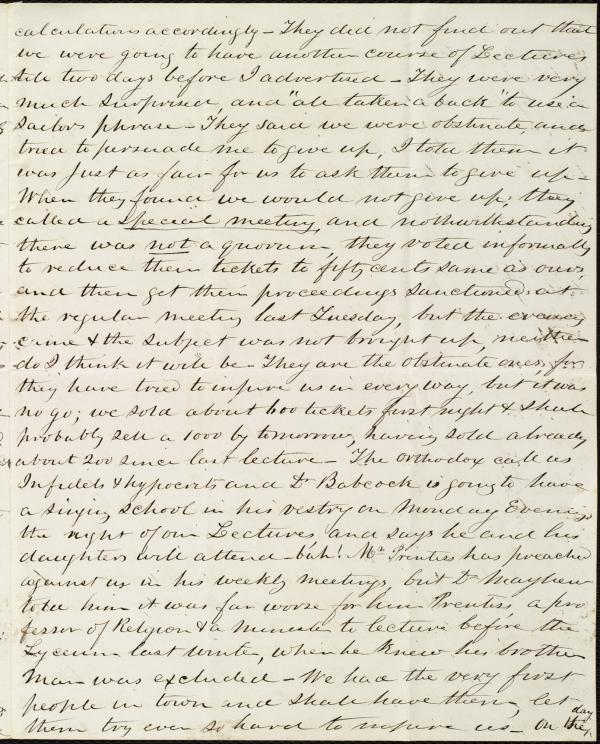 calculations accordingly - They did not find out that
we were going to have another course of Lectures
till two days before I advertised - They were very
much surprised, and "all taken aback" to use a
sailors phrase - They said we were obstinate, and
tried to persuade me to give up, I told them it
was just as fair for us to ask them to give up -
When they found we would not give up; they
called a special meeting, and nothwithstanding
there was not a quorum, they voted informally
to reduce their tickets to fifty cents same as ours,
and then get their proceedings sanctioned at
the regular meeting last Tuesday, but the evening
came & the subject was not brought up, neither
do I think it will be - They are the obstinate ones, for
they have tried to injure us in every way, but it was
no go; we sold about 600 tickets first night & shall
probably sell a 1000 by tomorrow, having sold already
about 200 since last lecture - The Orthodox call us
Infidels & hypocrits and Dr Babcock is going to have
a singing school in his vestry on Monday Evenings
the night of our Lectures, and says he and his
daughters will attend - bah! Mr Prentiss has preached
against us in his weekly meetings, but Dr Mayhew
told him it was far worse for him Prentiss, a pro
fessor of Religion & a Minister to lecture before the
Lyceum last winter, when he knew his brother
Man was excluded - We had the very first
people in town and shall have them, let
them try ever so hard to injure us - On the
day